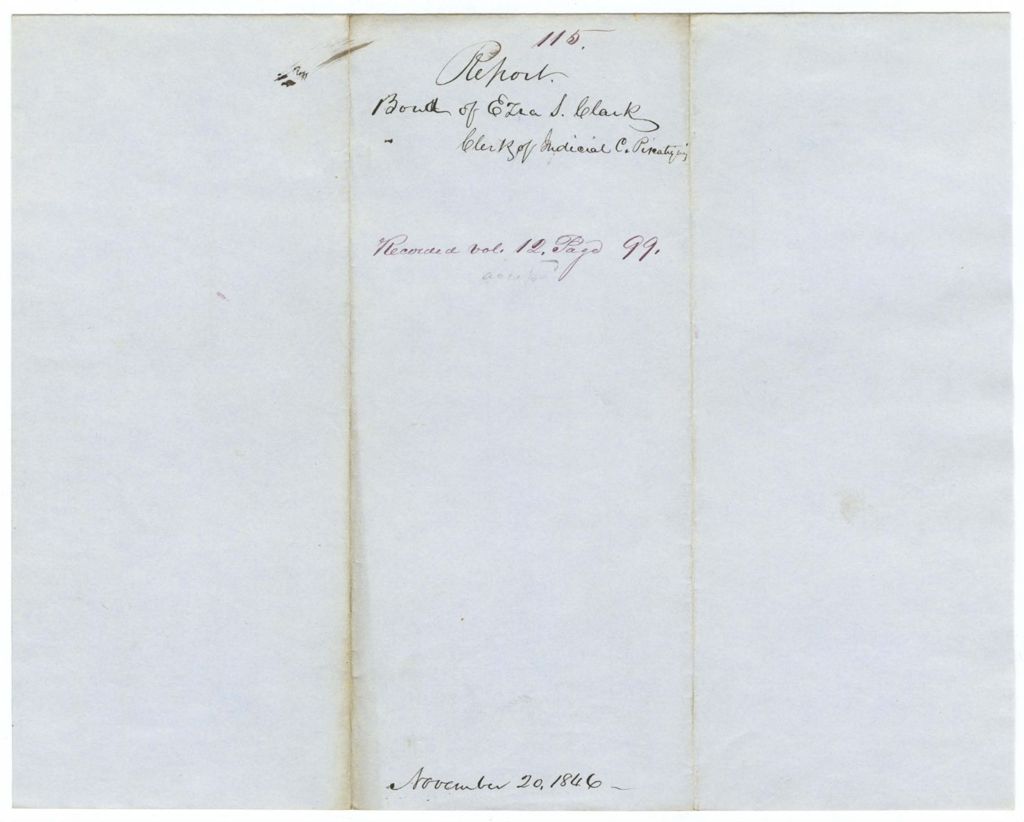 115.
Report.
Bond of Ezra S. Clark
" Clerk of Judicial C. Piscataquis
Recorded vol. 12. Page 99.
November 20, 1846